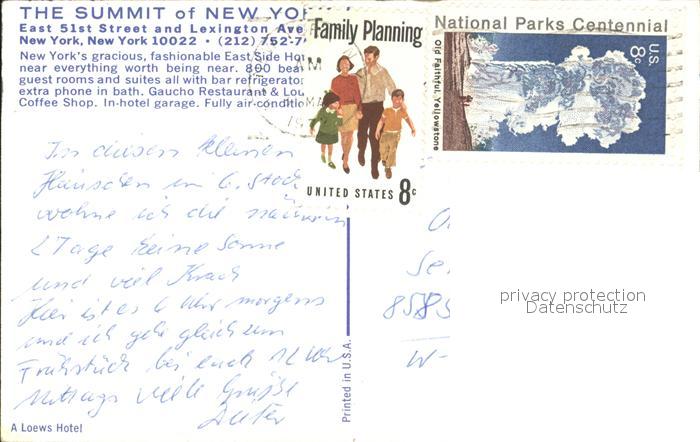 THE SUMMIT of NEW YOR
East 51st Street and Lexington Ave
New York, New York 10022 • (212) 752-7
New York's gracious, fashionable East Side Ho
near everything worth being near. 800 bea
guest rooms and suites all with bar refrigerato
extra phone in bath. Gaucho Restaurant & Lou
Coffee Shop. In-hotel garage. Fully air-conditio
Family Planning
UNITED STATES 8c
National Parks Centennial
Old Faithful, Yellowstone
U.S. 8c
In diesem kleinen
Häuschen im 6. Stock
wohne ich die
2 Tage keine Sonne
und viel Krach
Hier ist es 6 Uhr morgens
und ich gehe gleich zum
Frühstück bei euch 12 Uhr
Mittags viele Grüße
Dieter
Se
858
W-
privacy protection
Datenschutz
Printed in U.S.A.
A Loews Hotel